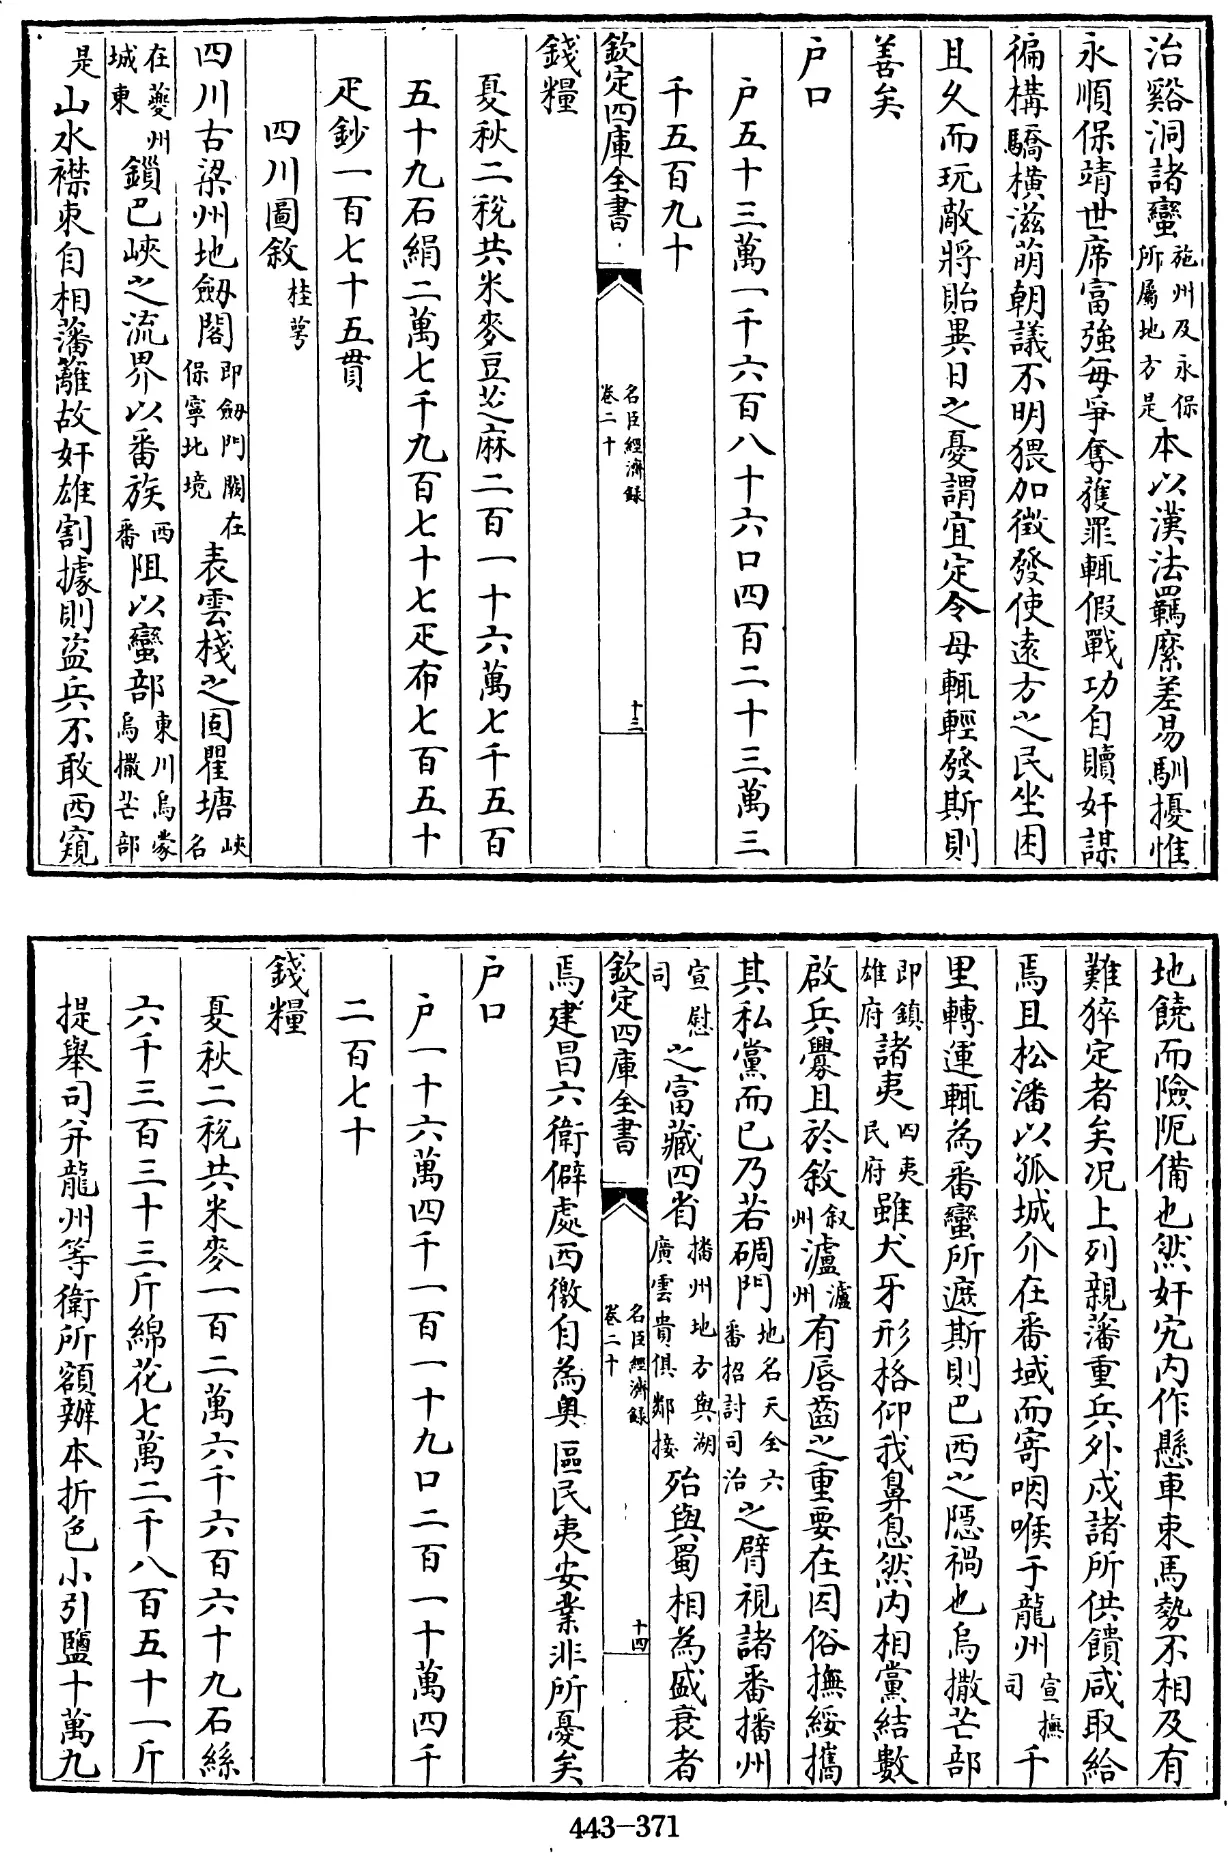 治谿洞諸蠻施州及永保所屬地方是本以漢法羈縻差易馴擾惟
永順保靖世席富強每爭奪獲罪輒假戰功自贖奸謀
徧構驕橫滋萌朝議不明猥加徴發使逺方之民坐困
且乆而玩敵將貽異日之憂謂宜定令毋輒輕發斯則
善矣
户口
户五十三萬一千六百八十六口四百二十三萬三
千五百九十
欽定四庫全書
名臣經濟録
卷二十
十三
錢糧
夏秋二税共米麥豆芝麻二百一十六萬七千五百
五十九石絹二萬七千九百七十七疋布七百五十
疋鈔一百七十五貫
四川圖敘桂萼
四川古梁州地劔閣即劔門關在保寧北境表雲棧之固瞿塘峽名
在夔州城東鎖巴峽之流界以番族西番阻以蠻部東川烏蒙烏撒芒部
是山水襟束自相藩籬故奸雄割據則盜兵不敢西窺
地饒而險阨備也然奸宄内作懸車束馬勢不相及有
難猝定者矣况上列親藩重兵外戍諸所供饋咸取給
焉且松潘以孤城介在番域而寄咽喉于龍州宣撫司千
里轉運輒為番蠻所遮斯則巴西之隱禍也烏撒芒部
即鎮雄府諸夷四夷民府雖犬牙形格仰我鼻息然内相黨結數
啟兵釁且於敘叙州瀘瀘州有唇齒之重要在因俗撫綏攜
其私黨而已乃若碉門地名天全六番招討司治之臂視諸番播州
宣慰司之富藏四省播州地方與湖廣雲貴俱鄰接殆與蜀相為盛衰者
欽定四庫全書
名臣經濟録
卷二十
十四
焉建昌六衛僻處西徼自為奥區民夷安業非所憂矣
户口
户一十六萬四千一百一十九口二百一十萬四千
二百七十
錢糧
夏秋二税共米麥一百二萬六千六百六十九石絲
六千三百三十三斤綿花七萬二千八百五十一斤
提舉司并龍州等衛所額辦本折色小引鹽十萬九
443-371